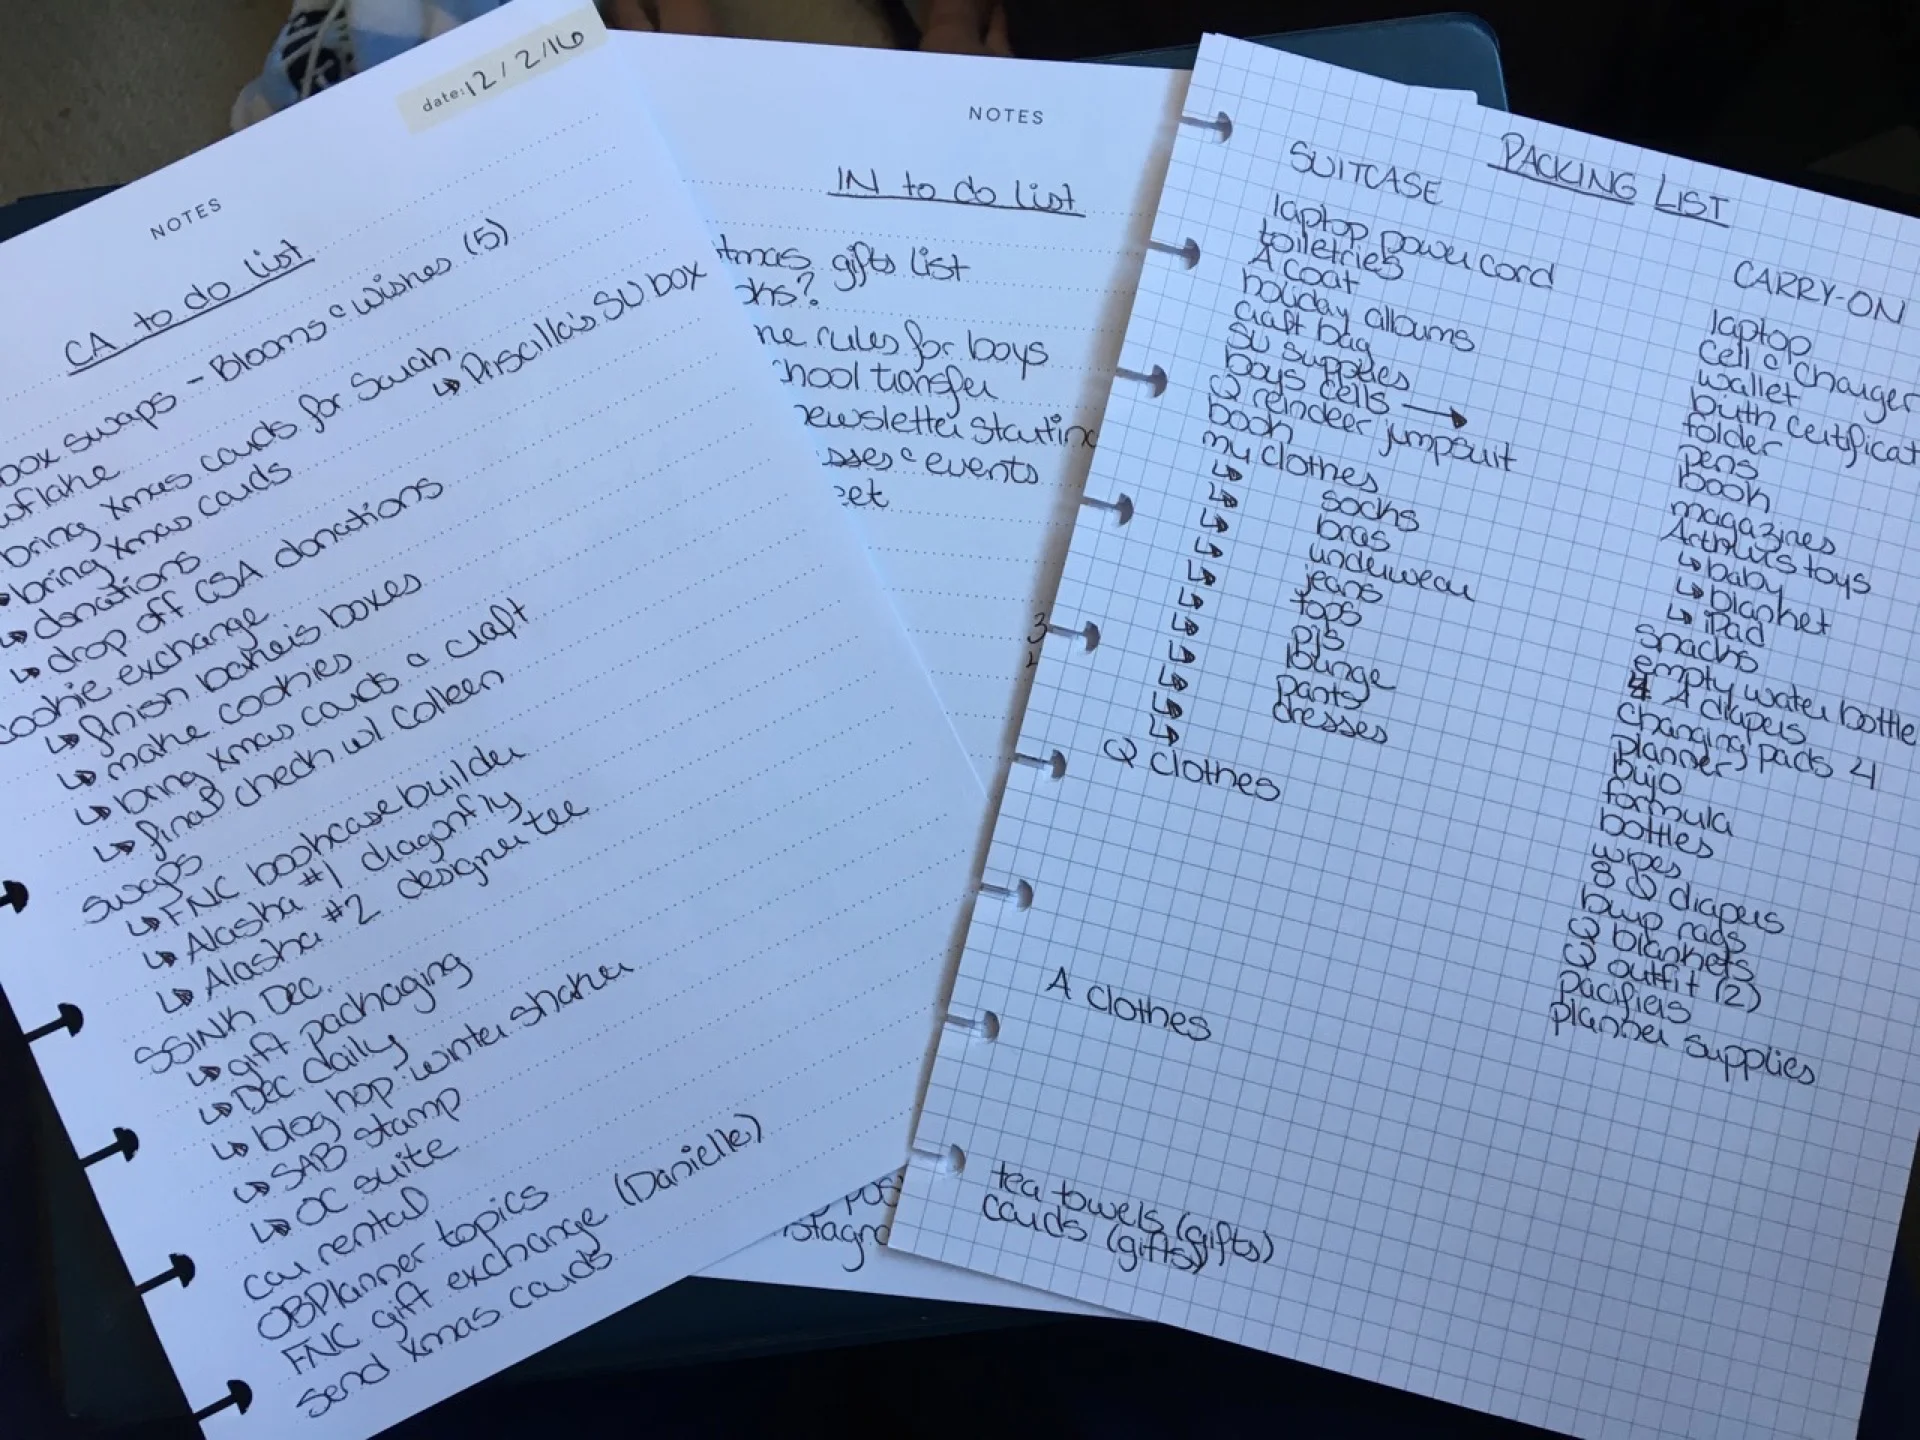 date: 12/2/16
NOTES
CA to do list
box swaps - Blooms & wishes (5)
wflake
↳ Priscilla's SU box
bring xmas cards for Swain
bring xmas cards
↳ donations
↳ drop off CSA donations
cookie exchange
↳ finish baker's boxes
↳ make cookies
↳ bring xmas cards & craft
↳ final check w/ Colleen
swaps
↳ FNC bookcase builder
↳ Alaska #1 dragonfly
↳ Alaska #2 designer tee
SSINK Dec.
↳ gift packaging
↳ Dec daily
↳ blog hop: winter shaker
↳ SAB stamp
↳ OC suite
car rental
OBPlanner topics
FNC gift exchange (Danielle)
send xmas cards
NOTES
IN to do list
tmas gifts list
oks?
ne rules for boys
hool transfer
newsletter starting
sses & events
eet
3
pos
stagra
PACKING LIST
SUITCASE
laptop power cord
toiletries
A coat
holiday albums
craft bag
SU supplies
boys cells →
Q reindeer jumpsuit
book
my clothes
↳ socks
↳ bras
↳ underwear
↳ jeans
↳ tops
↳ pjs
↳ lounge
↳ pants
↳ dresses
↳
↳
Q clothes
A clothes
tea towels (gifts)
cards (gifts)
CARRY-ON
laptop
cell & charger
wallet
birth certificat
folder
pens
book
magazines
Arthur's toys
↳ baby
↳ blanket
↳ iPad
snacks
empty water bottle
4 A diapers
changing pads 4
planner
bujo
formula
bottles
wipes
8 Q diapers
burp rags
Q blankets
Q outfit (2)
pacifiers
planner supplies